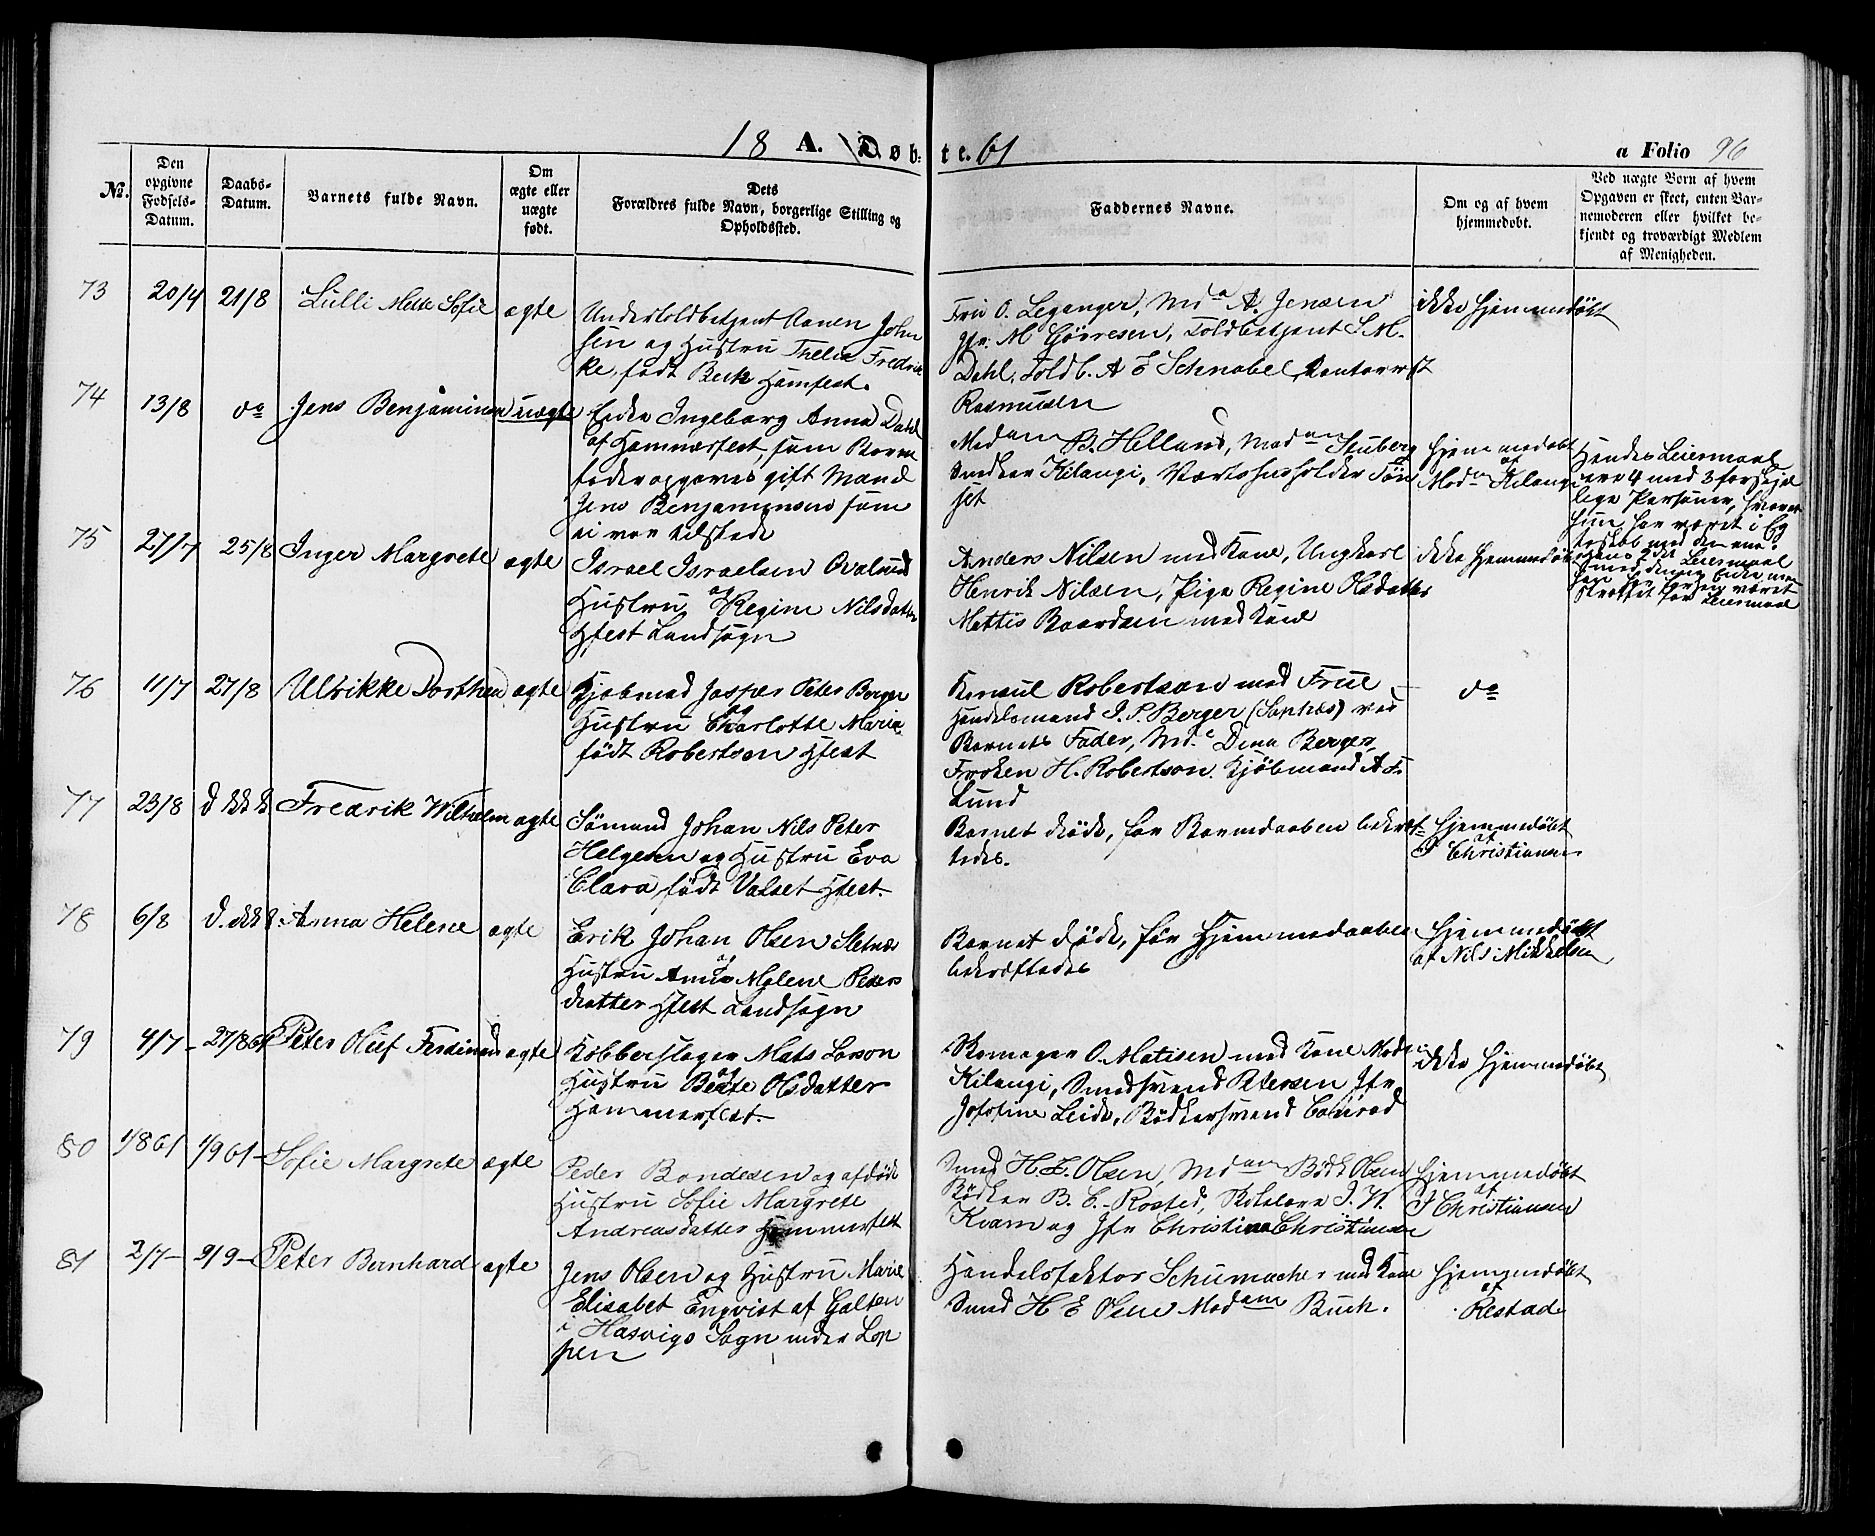 18 A. Døbte. 61
a Folio 96
No.
Den opgivne Fødsels-Datum.
Daabs-Datum.
Barnets fulde Navn.
Om ægte eller uægte født.
Dets Forældres fulde Navn, borgerlige Stilling og Opholdssted.
Faddernes Navne.
Om og af hvem hjemmedøbt.
Ved uægte Børn af hvem Opgaven er skeet, enten Barnemoderen eller hvilket bekjendt og troværdigt Medlem af Menigheden.
73 20/4 21/8 Lulli Mette Sofie ægte
Undertoldbetjent Aanen John
sen og Hustru Thelse Fredrik
ke, født Beck Hamfest.
Fru O. Leganger, Md a A. Jensen
Jfr. M Gørresen, Toldbetjent S M.
Dahl, Toldb. A E Schnabel, Kontorist
Rasmusen
ikke hjemmedøbt
74 13/8 do Jens Benjaminsen uægte
Enke Ingeborg Anna Dahl
af Hammerfest, som Barne
fader opgaves gift Mand
Jens Benjaminsen som
ei var tilstede
Madam B. Helland, Madam Stuberg
Snedker Kilangi, Vertshusholder Tøn
set
hjemmedøbt
af
Mad. Kilangi
Hendes Leiermaal
ere 4 med 3 forskjel
lige Personer, hvoraf
hun har været i Eg
teskab med den ene.
hans 2det Leiermaal
med denne Enke men
han har før ei været
straffet for Leiermaal
75 27/7 25/8 Inger Margrete ægte
Israel Israelsen Qvalsund
Hustru og Regine Nilsdatter
Hfest Landsogn
Anders Nilsen med Kone, Ungkarl
Henrik Nilsen, Pige Regine Olsdatter
Mattis Baardsen med Kone
ikke hjemmedøbt
76 11/7 27/8 Ulrikke Dorthea ægte
Kjøbmand Jasper Peter Berger
Hustru og Charlotte Maria
født Robertson Hfest
Konsul Robertson med Frue
Handelsmand J. P. Berger (Sopnes) ved
Barnets Fader, Md. Dina Berger,
Frøken H. Robertson. Kjøbmand A F.
Lund
do
77 23/8 Fredrik Wilhelm ægte
Sømand Johan Nils Peter
Helgesen og Hustru Eva
Clara, født Valset Hfest.
Barnet døde, før Barnedaaben bekræf-
tedes.
hjemmedøbt
af
J Christiansen
78 6/8 Anna Helene ægte
Erik Johan Olsen Sletnes
Hustru og Anna Malene Peders
datter Hfest Landsogn
Barnet døde, før Hjemmedaaben
bekræftedes
hjemmedøbt
af Nils Mikkelsen
79 4/7 27/8 61 Peter Oluf Ferdinand ægte
Kobberslager Mats Larson
Hustru og Berte Olsdatter
Hammerfest.
Skomager O. Matisen med Kone Mad.
Kilangi, Smedsvend Petersen Jfr
Josefine Leide, Bødkersvend Conrad
ikke hjemmedøbt
80 1/8 61 1/9 61 Sofie Margrete ægte
Peder Bondesen og afdøde
Hustru Sofie Margrete
Andreasdatter Hammerfest
Smed H. E. Olsen, Madam Bødk Olsen
Bødker B. C. Rosted, Kirkelærer J. W.
Kvam og Jfr Christine Christiansen
hjemmedøbt
af
J Christiansen
81 2/7 9/9 Peter Bernhard ægte
Jens Olsen og Hustru Marie
Elisabet Enqvist af Galten
i Hasvigs Sogn under Lop
pen
Handelsfaktor Schumacher med Kone
Smed H E Olsen Madam Buck.
hjemmedøbt
af
Restad